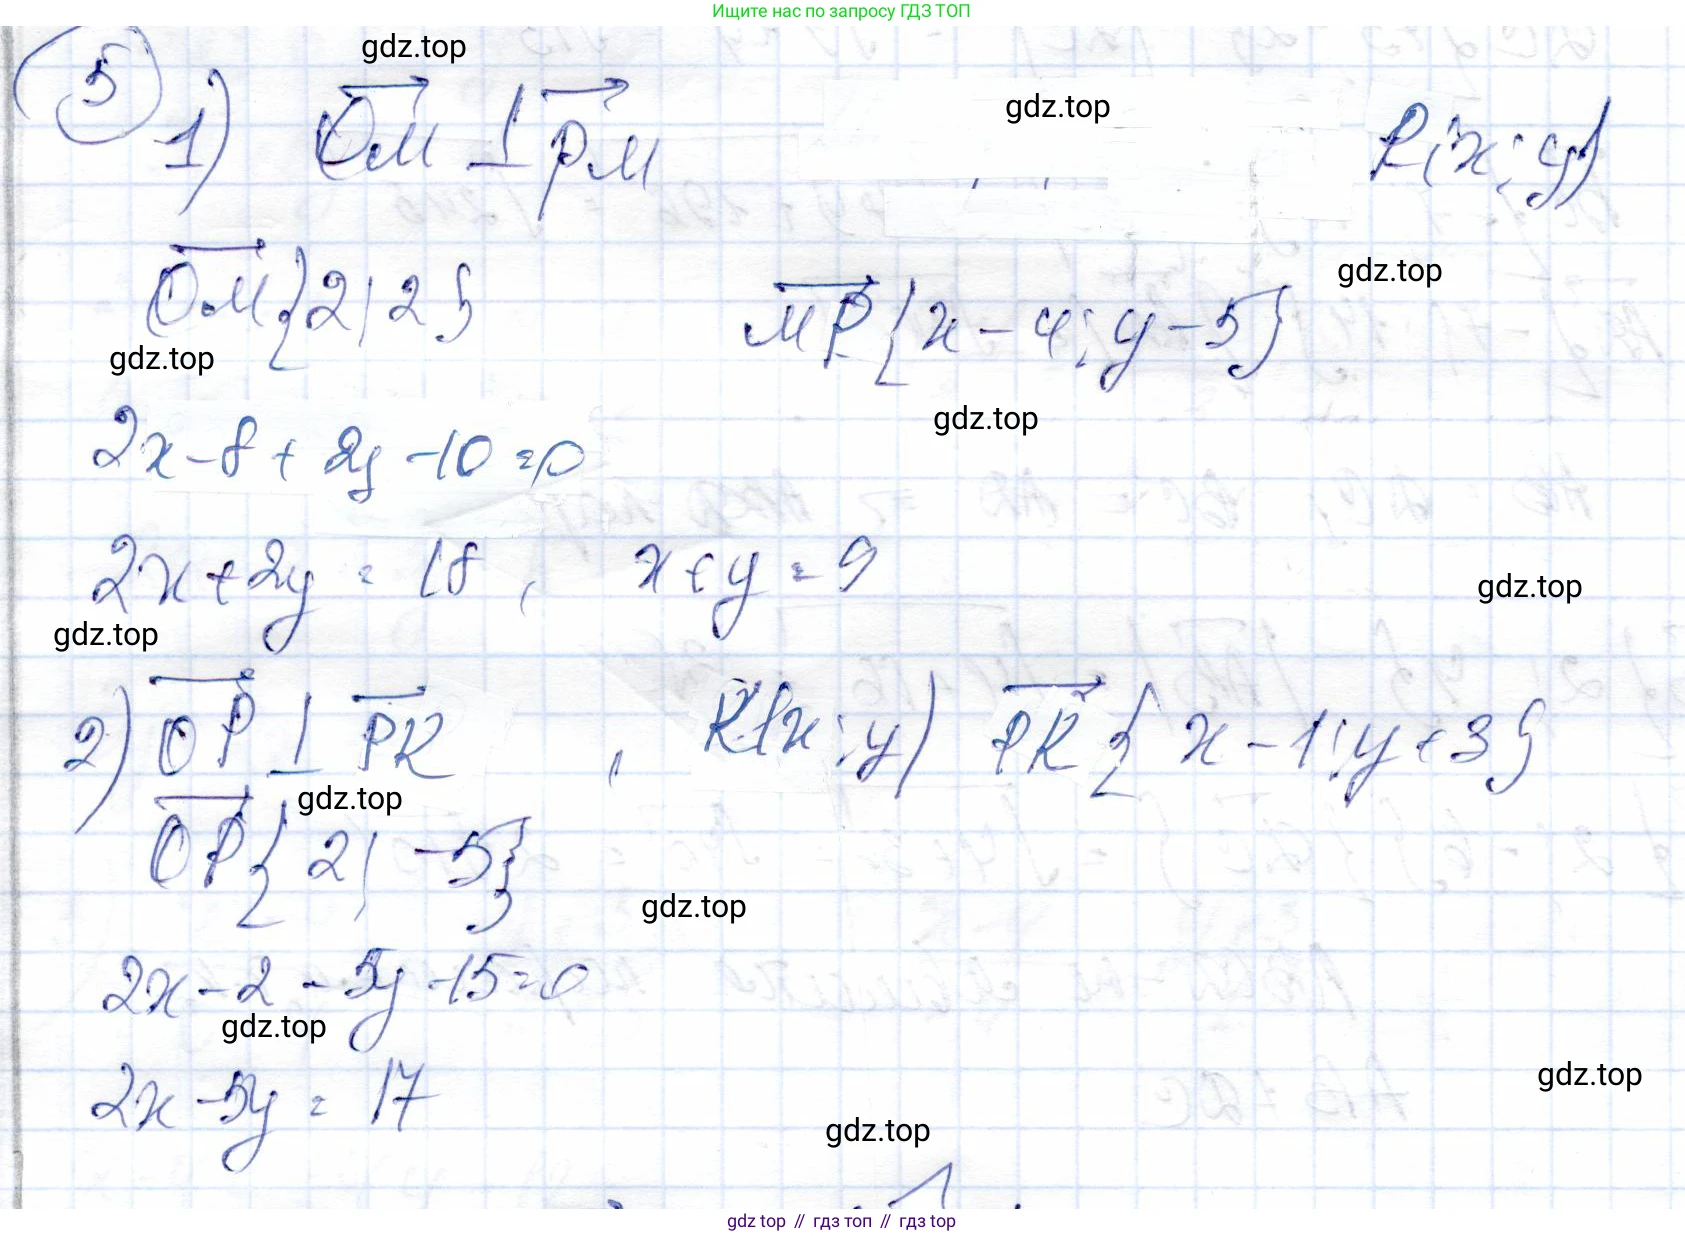 Ищите нас по запросу ГДЗ ТОП
gdz.top
5
1) OM ⊥ PM
gdz.top
P(x; y)
OM{2; 2}
MP{x-4; y-5}
gdz.top
gdz.top
gdz.top
2x-8+2y-10=0
2x+2y=18, x+y=9
gdz.top
gdz.top
2) OP ⊥ PK, K(x; y) PK{x-1; y+3}
gdz.top
OP{2; -5}
gdz.top
2x-2-5y-15=0
gdz.top
2x-5y=17
gdz.top
gdz.top
gdz top // гдз топ // гдз top